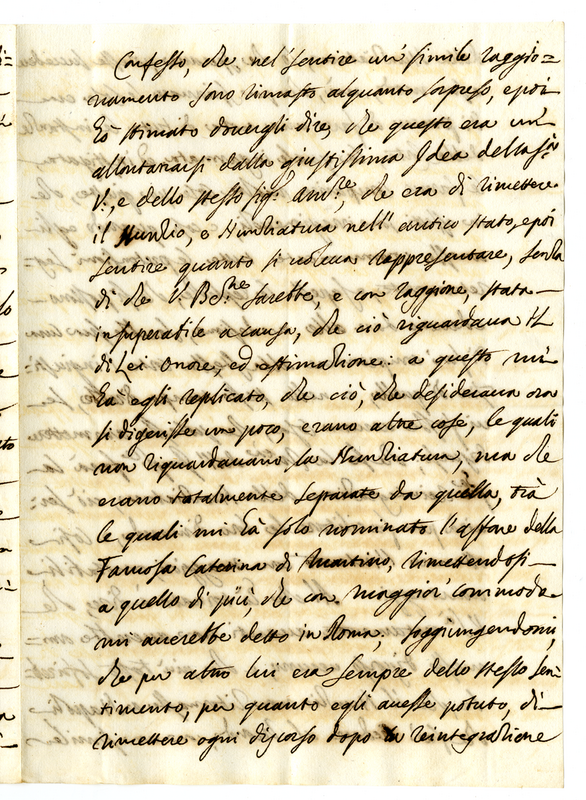 Confesso, che nel' sentire un' simile raggio=
namento sono rimasto alquanto sorpreso, e poi
hò stimato douergli dire, che questo era un'
allontanarsi dalla giustissima Idea della S.
V., e dello stesso sig.r Amb.re, che era di rimettere
il Nunzio, e Nunziatura nell' antico stato, e poi
sentire quanto si uoleua rappresentare, senza
di che V. Be.ne sarebbe, e con raggione, stata
insuperabile a causa, che ciò riguardaua il
di Lei onore, ed estimazione: a questo mi
hà egli replicato, che ciò, che desideraua ora
si digerisse un poco, erano altre cose, le quali
non riguardauano la Nunziatura, ma che
erano totalmente separate da quella, trà
le quali mi hà solo nominato l'affare della
Famosa Caterina di Martino, rimettendosi
a quello di più, che con maggior' commodo
mi auerebbe detto in Roma; soggiungendomi,
che per altro lui era sempre dello stesso sen=
timento, per quanto egli auesse potuto, di
rimettere ogni discorso dopo la reintegrazione